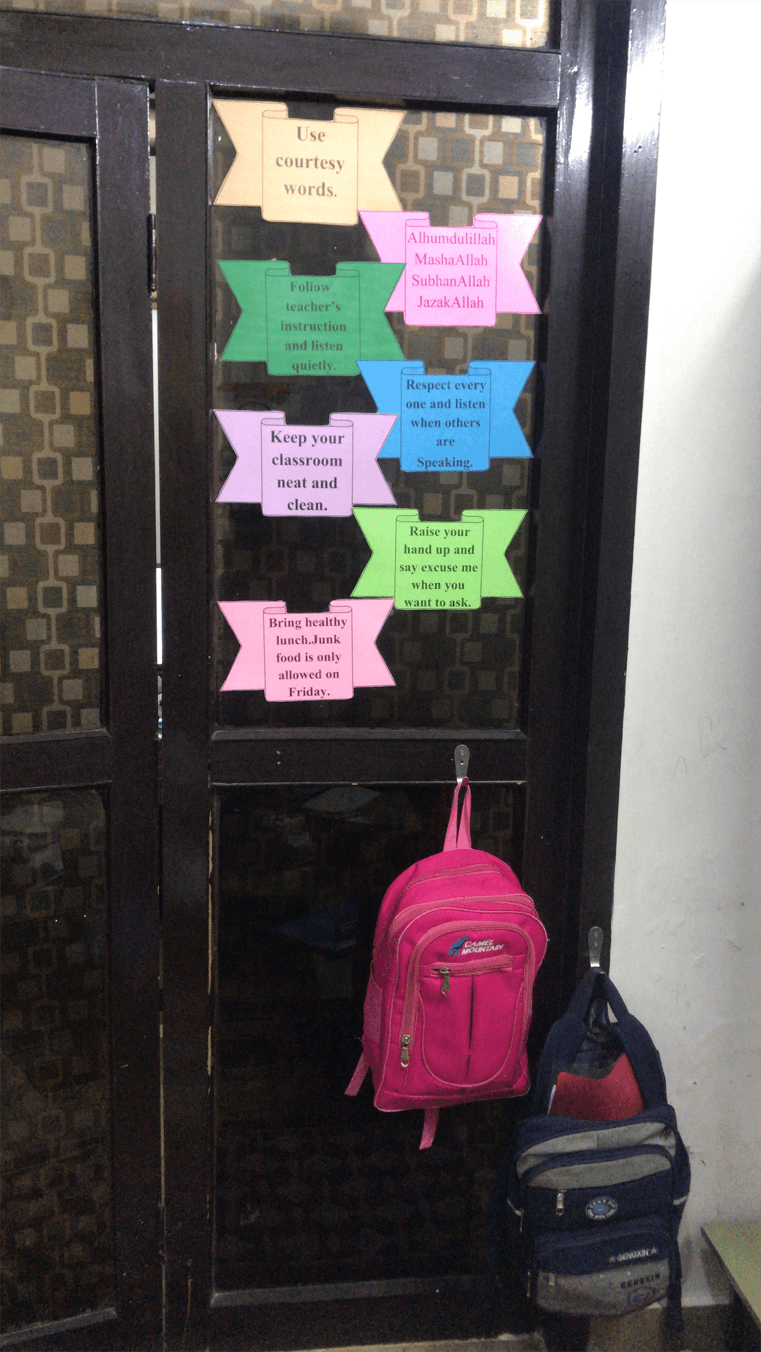 Use
courtesy
words.
Alhumdulillah
MashaAllah
SubhanAllah
JazakAllah
Follow
teacher's
instruction
and listen
quietly.
Respect every
one and listen
when others
are
Speaking.
Keep your
classroom
neat and
clean.
Raise your
hand up and
say excuse me
when you
want to ask.
Bring healthy
lunch.Junk
food is only
allowed on
Friday.
CAMEL
MOUNTAIN
GENGXIN
GENGXIN